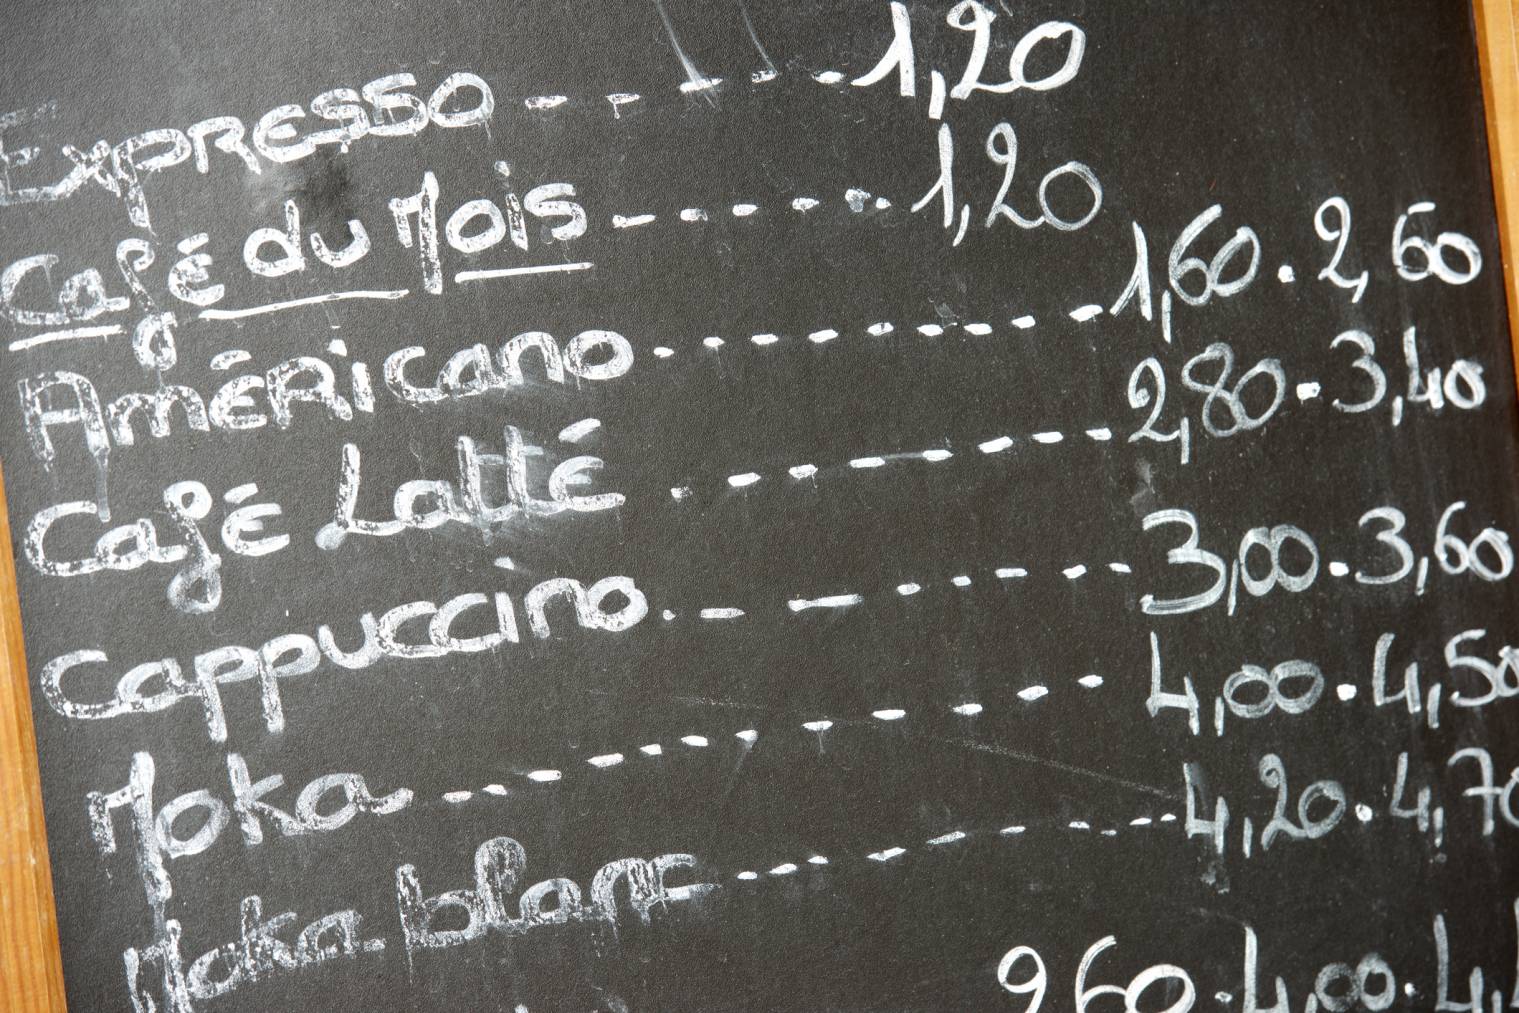 Expresso - - - - - 1,20
Café du Mois - - - - - 1,20
Américano - - - - - - - - - 1,60 . 2,60
Café Latté - - - - - - - - 2,80 . 3,40
Cappuccino . - - - - - - - 3,00 . 3,60
Moka - - - - - - - - - - - 4,00 . 4,50
Moka blanc - - - - - - - - - - 4,20 . 4,70
4,00 .